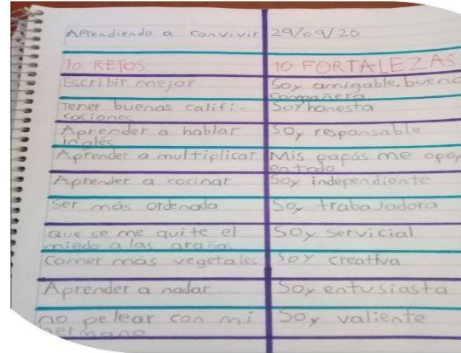 Aprendiendo a convivir 29/09/20
10 RETOS 10 FORTALEZAS
Escribir mejor Soy amigable, buena compañera
Tener buenas califi- Soy honesta
caciones
Aprender a hablar Soy responsable
inglés
Aprender a multiplicar Mis papás me apoy
en todo
Aprender a cocinar Soy independiente
Ser más ordenada Soy trabajadora
Que se me quite el Soy servicial
miedo a las arañas
Comer más vegetales Soy creativa
Aprender a nadar Soy entusiasta
no pelear con mi Soy valiente
hermano